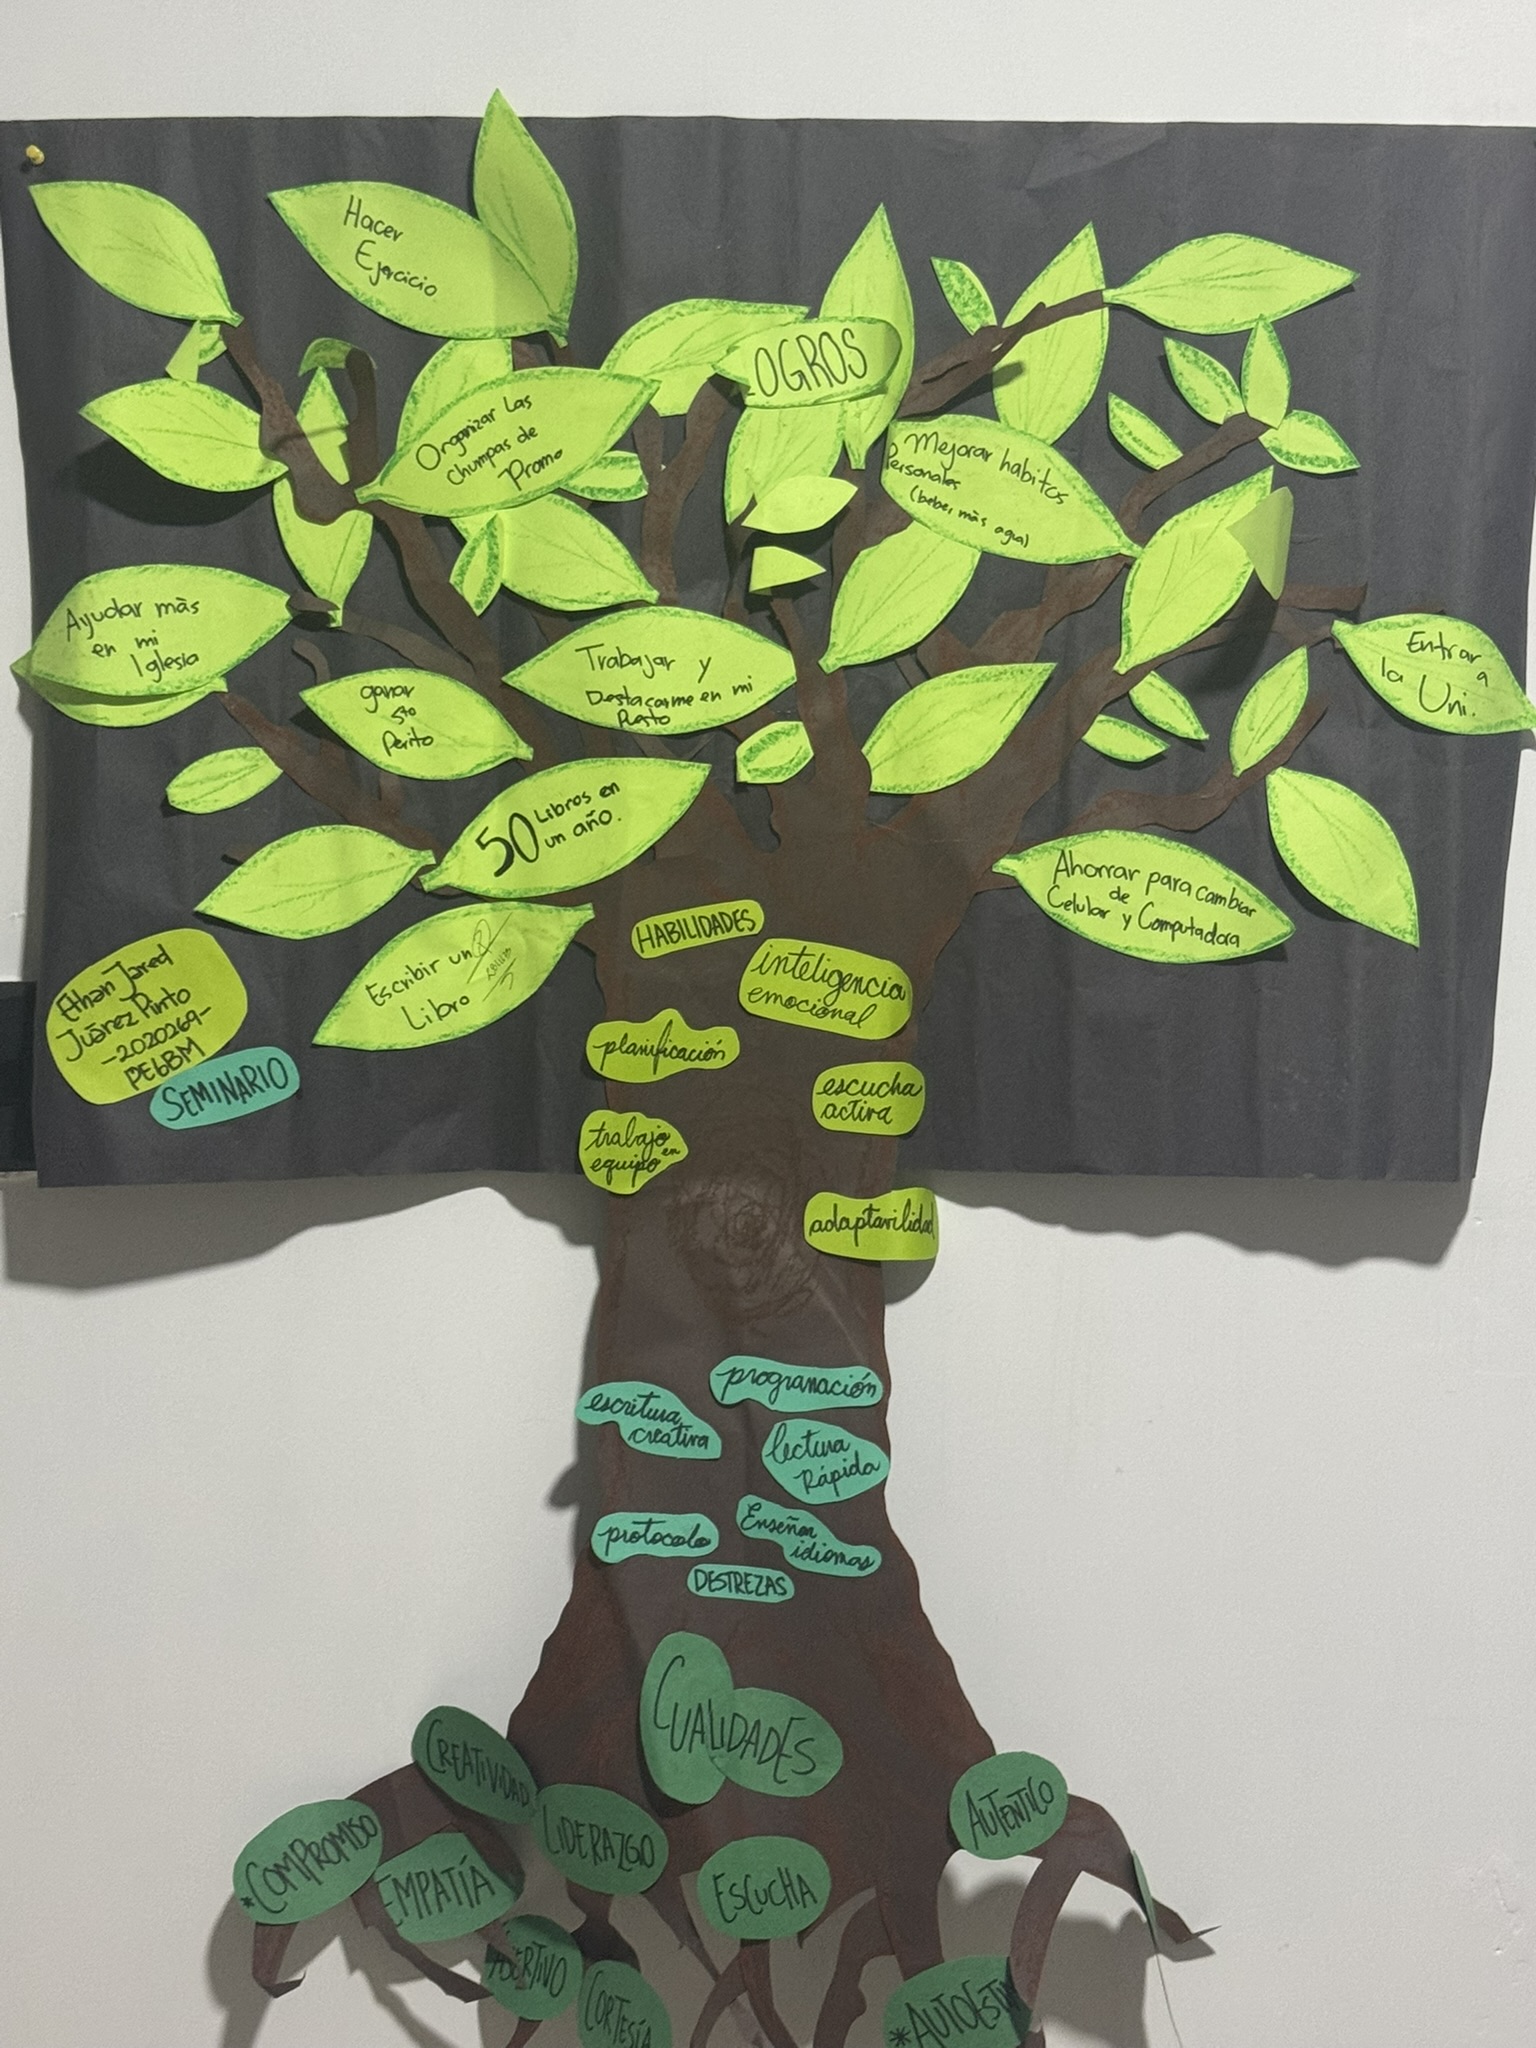 Hacer
Ejercicio
LOGROS
Organizar las
chumpas de
Promo
Mejorar habitos
Personales
(beber más agua)
Ayudar màs
en mi
Iglesia
Trabajar y
Destacarme en mi
Puesto
Entrar a
la Uni.
ganar
5to
Perito
50 Libros en
un año.
Ahorrar para cambiar
de
Celular y Computadora
Escribir un
Libro
Ethan Jared
Juárez Pinto
-2020269-
PE6BM
SEMINARIO
HABILIDADES
inteligencia
emocional
planificación
escucha
activa
trabajo en
equipo
adaptavilidad
programación
escritura
creativa
lectura
Rápida
protocolo
Enseñar
idiomas
DESTREZAS
CUALIDADES
CREATIVIDAD
AUTENTICO
*COMPROMISO
LIDERAZGO
EMPATÍA
ESCUCHA
CORTESÍA